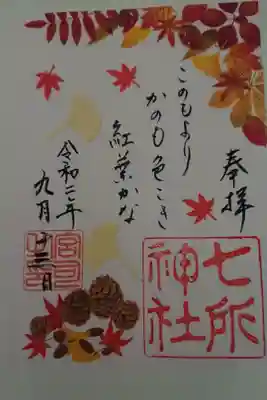 奉拝
七所
神社
このもより
かのも色こき
紅葉かな
令和二年
九月
廿二日